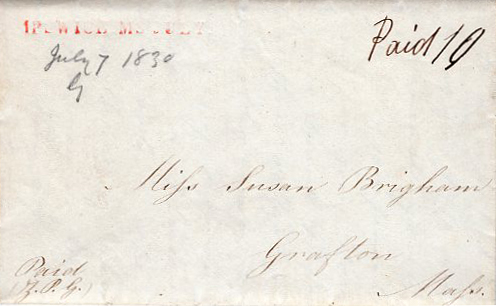 IPSWICH Ms JULY
July 7 1830
Paid 10
Miss Susan Brigham
Grafton
Mass.
Paid
(Z. P. G.)